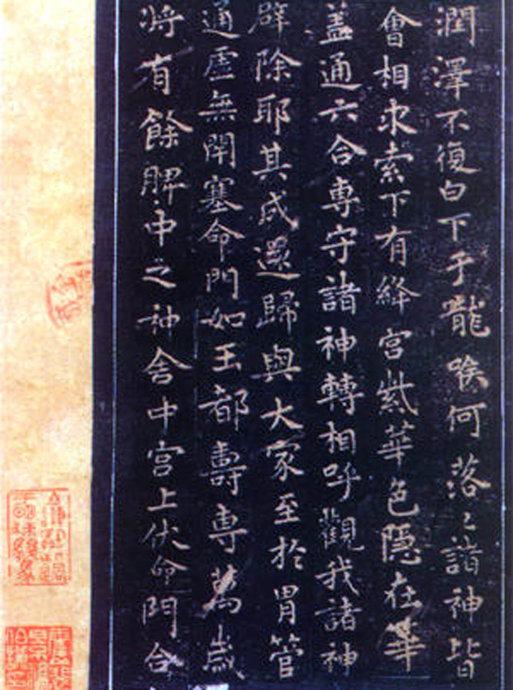 潤澤不復白下于嚨喉何落々諸神皆
會相求索下有絳宮紫華色隱在華
蓋通六合專守諸神轉相呼觀我諸神
辟除耶其成還歸與大家至於胃管
通虛無閉塞命門如玉都壽專萬歲
將有餘脾中之神舍中宮上伏命門合